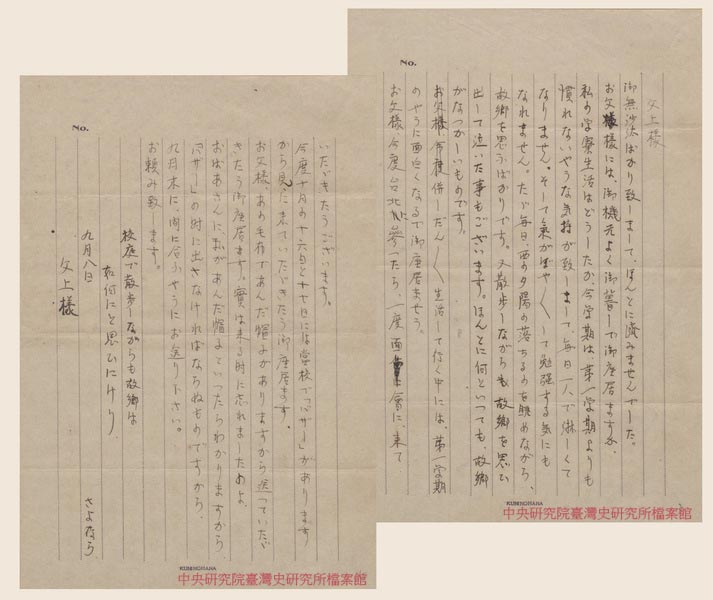 No.
父上様
御無沙汰ばかり致しまして、ほんとに済みませんでした。
お父様には、御機元よく御暮しで御座居ますか、
私の学寮生活はどうしたか、今学期は、第一学期よりも
慣れないやうな気持が致しまして、毎日一人で淋しくて
なりません。そして氣がぼや〱して勉強する気にも
なれません。たゞ毎日、西の夕陽の落ちるのを眺めながら、
故郷を思ふばかりです。又散歩しながらも故郷を思ひ
出して泣いた事もございます。ほんとに何といつても、故郷
がなつかしいものです。
お父様、今度併しだん〱生活して行く中には、第一学期
のやうに面白くなるで御座居ませう。
お父様、今度台北に參つたら、一度面會に、来て
KUNINOHANA
中央研究院臺灣史研究所檔案館
No.
いたゞきたうございます。
今度十月の十六日と十七日には学校で「バザー」があります
から見に来ていたゞきたう御座居ます。
お父様、あの毛布であんだ帽子がありますから送つていたゞ
きたう御座居ます。實は来る時に忘れましたのよ、
おばあさんに、私があんだ帽子といつたらわかりますから、
「バザー」の時に出さなければならぬものですから、
九月末に、間に合ふやうにお送り下さい。
お頼み致します。
校庭で散歩しながらも故郷は
如何にと思ひにけり
さよなら
九月八日
父上様
KUNINOHANA
中央研究院臺灣史研究所檔案館